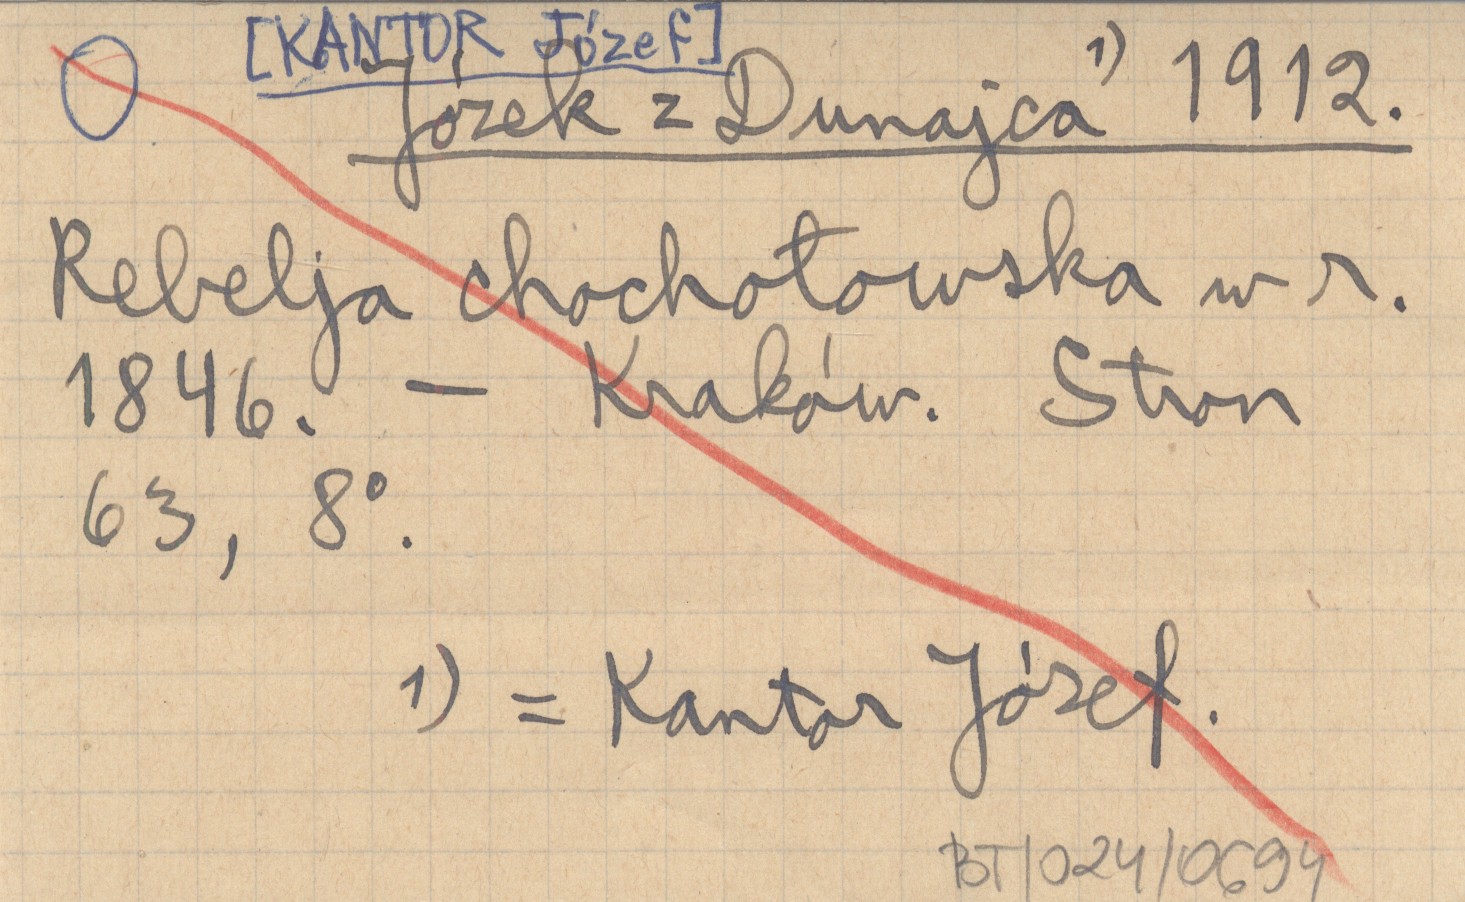 [KANTOR Józef]
Józek z Dunajca 1) 1912.
Rebelja chochołowska w r.
1846. — Kraków. Stron
63, 8°.
1) = Kantor Józef.
BT/024/0694